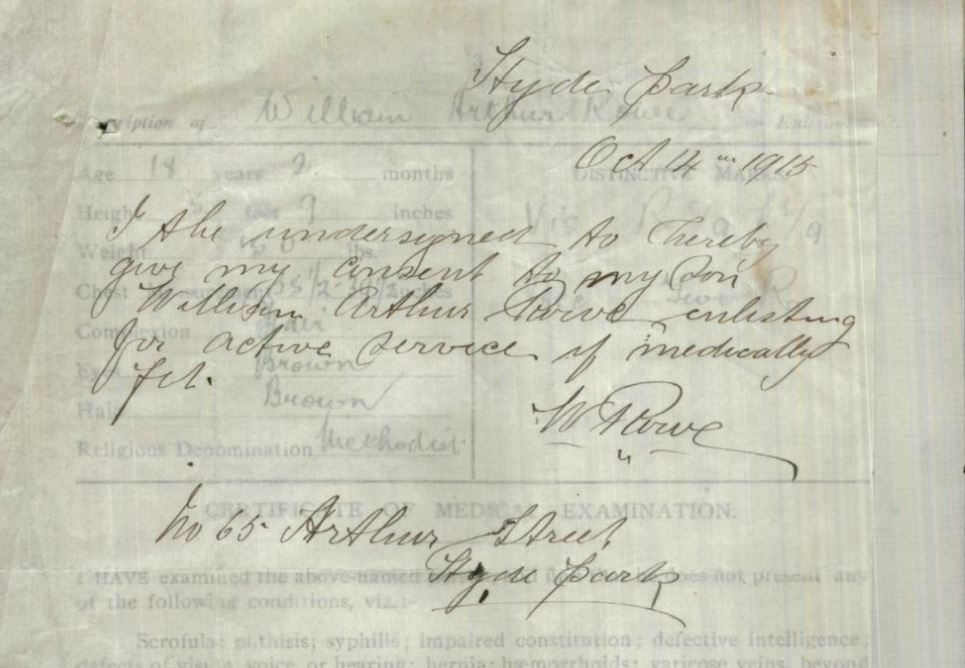 Hyde Park
Description of William Arthur Rowe on Enlistment
Oct 14th 1915
Age 18 years 2 months
DISTINCTIVE MARKS
Height feet 7 inches
I the undersigned do hereby
Weight lbs.
give my consent to my son
Chest inches
William Arthur Rowe enlisting
Complexion Fair
for active service if medically
Eyes Brown
fit.
Hair Brown
W Rowe
Religious Denomination Methodist
CERTIFICATE OF MEDICAL EXAMINATION.
No 65 Arthur Street
Hyde Park
I HAVE examined the above-named does not present any
of the following conditions, viz.:-
Scrofula; phthisis; syphilis; impaired constitution; defective intelligence;
defects of vision, voice or hearing; hernia; hæmorrhoids; varicose veins, beyond